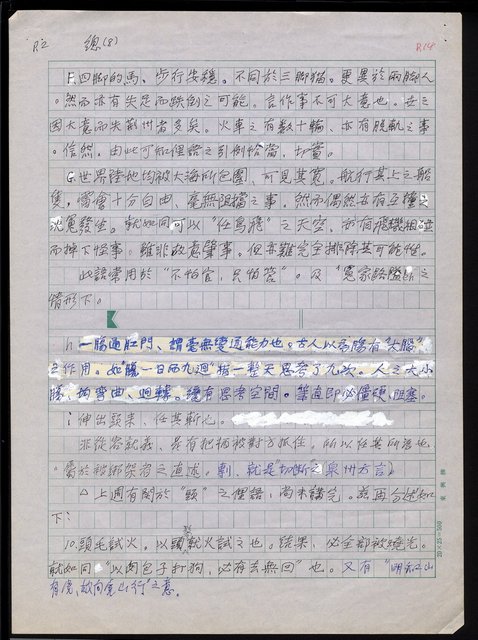 總(8)
F.四腳的馬、步行安穩。不同於三腳貓。更異於兩腳人
。然而亦有失足而跌倒之可能。言作事不可大意也。世之
因大意而失荊州者多矣。火車之有數十輪、亦有脫軌之事
。信然。由此可知俚語之引例恰當、切實。
G.世界陸地均被大海所包圍、可見其寬。航行其上之船
隻，當會十分自由、毫無阻擋之事。然而偶然亦有互撞之
沈船發生。就如同可以“任鳥飛”之天空、亦有飛機相撞
而掉下怪事。雖非故意肇事。但亦難完全排除其可能性。
此語常用於“不怕官，只怕管”。及“冤家路狹”之
情形下。
h.一腸通肛門、謂毫無變通能力也。古人以為腸有“大腦”
之作用。如“腸一日而九迴”指一整天思考了九次。人之大小
腸、均彎曲、迴轉。纔有思考空間。筆直即必僵硬、阻塞。
i.伸出頭來、任其斬也。
非從容就義、是有把柄被對方抓住，所以任其所為也
。屬於被綁架者之直述。剸，就是“切斷”之泉州方言
△上週有關於“頭”之俚語，尚未講完。茲再合述如
下：
10.頭毛試火。以頭髮就火試之也。結果、必全部被燒光。
就如同“以肉包子打狗，必有去無回”也。又有“明知山
有虎，故向虎山行”之意。
20×25=500